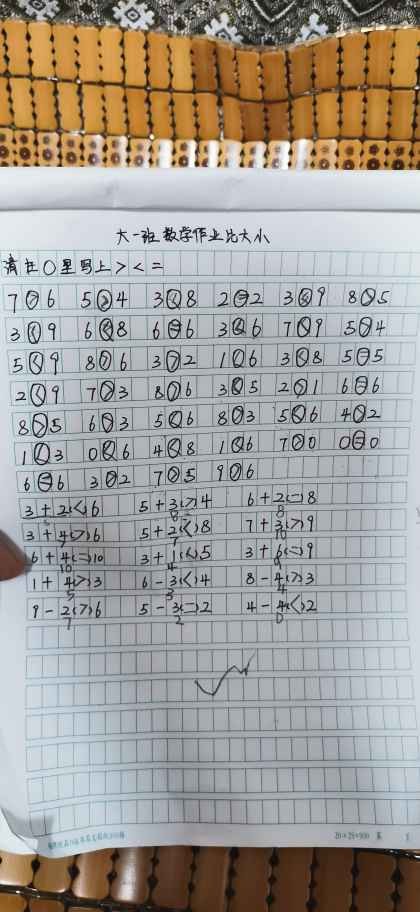 大一班数学作业比大小
请在○里写上><=
7>6 5>4 3<8 2=2 3<9 8>5
3<9 6<8 6=6 3<6 7<9 5>4
5<9 8>6 3>2 1<6 3<8 5=5
2<9 7>3 8>6 3<5 2>1 6=6
8>5 6>3 5<6 8>3 5<6 4>2
1<3 0<6 4<8 1<6 7>0 0=0
6=6 3>2 7>5 9>6
3+2(<)6 5+3(>)4 6+2(=)8
5 8 8
3+4(>)6 5+2(<)8 7+3(>)9
7 7 10
6+4(=)10 3+1(<)5 3+6(=)9
10 4 9
1+4(>)3 6-3(<)4 8-4(>)3
5 3 4
9-2(>)6 5-3(=)2 4-4(<)2
7 2 0
20×25=500